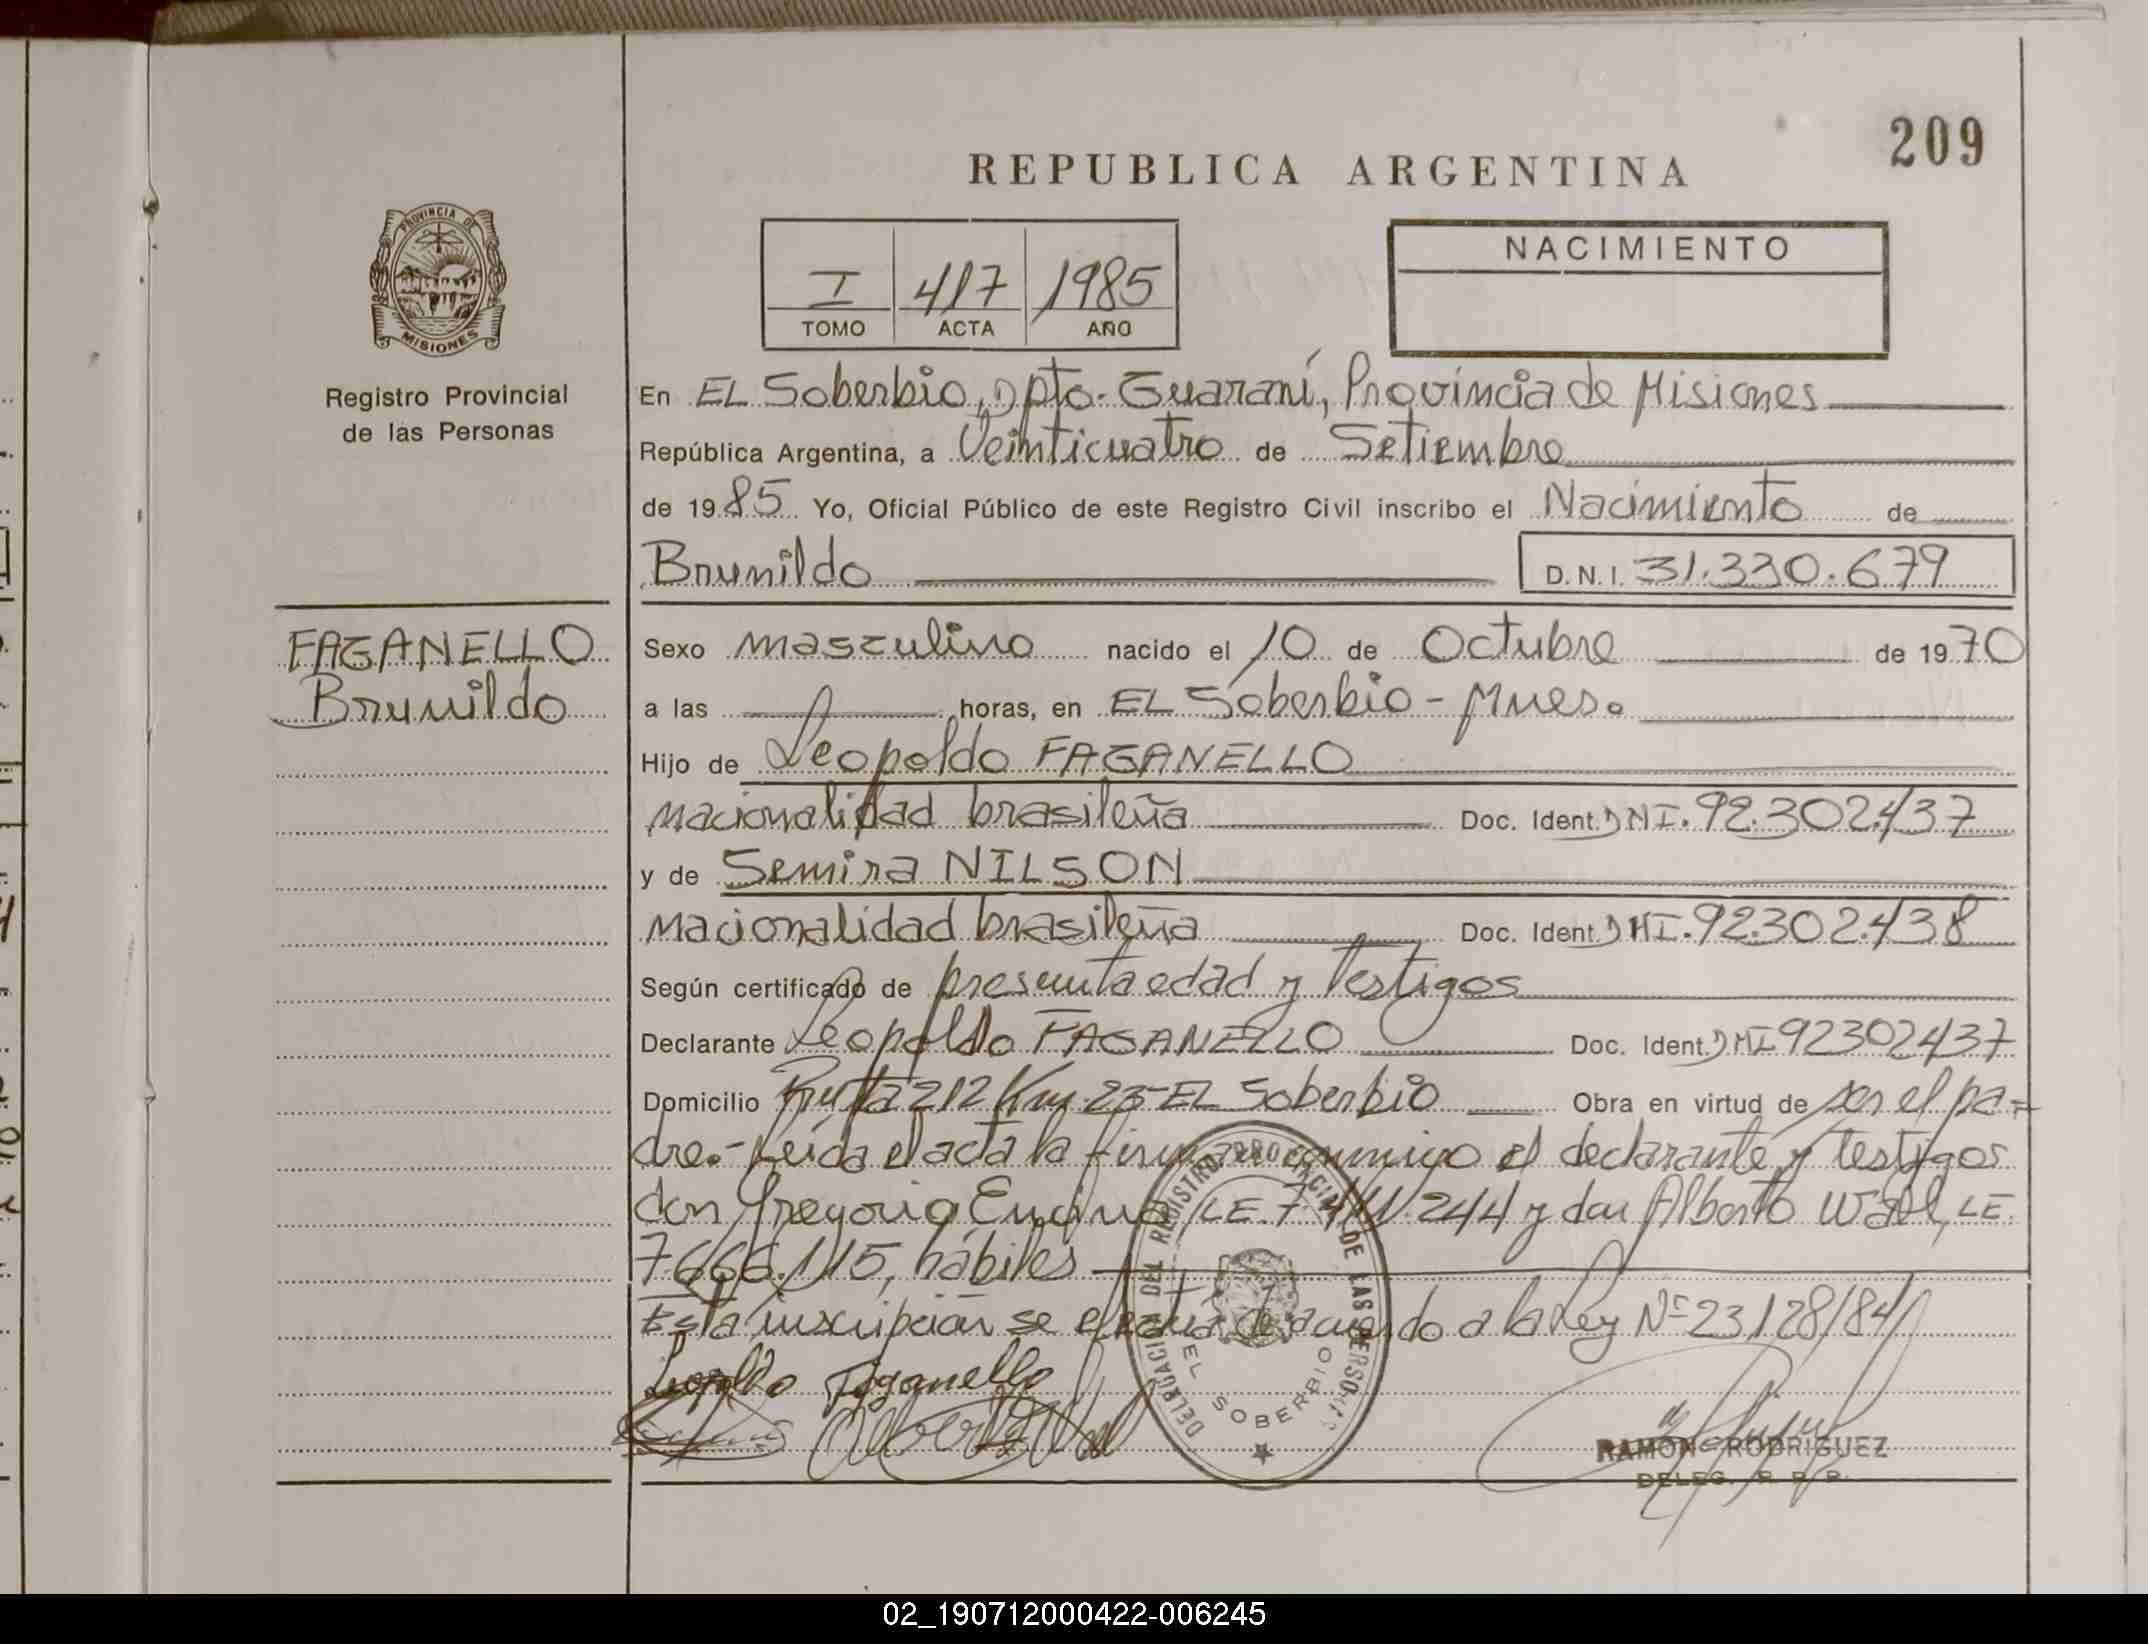 209
REPUBLICA ARGENTINA
PROVINCIA DE
MISIONES
Registro Provincial
de las Personas
I 417 1985
TOMO ACTA AÑO
NACIMIENTO
En EL Soberbio, Dpto. Guaraní, Provincia de Misiones
República Argentina, a Veinticuatro de Setiembre
de 1985 Yo, Oficial Público de este Registro Civil inscribo el Nacimiento de
Brunildo D.N.I. 31.330.679
FAGANELLO
Brunildo
Sexo masculino nacido el 10 de Octubre de 1970
a las horas, en EL Soberbio - Mnes.
Hijo de Leopoldo FAGANELLO
nacionalidad brasileña Doc. Ident. DNI. 92.302.437
y de Semira NILSON
nacionalidad brasileña Doc. Ident. DNI. 92.302.438
Según certificado de presunta edad y testigos
Declarante Leopoldo FAGANELLO Doc. Ident. DNI 92302437
Domicilio Ruta 212 Km. 23 - EL Soberbio Obra en virtud de ser el pa-
dre.- Leída el acta la firman conmigo el declarante y testigos
don Gregorio Encina, LE. 7 .244 y don Alberto Wall, LE.
7.666.115, hábiles
Esta inscripción se efectúa de acuerdo a la Ley Nº 23128/84
Leopoldo Faganello
DELEGACION DEL REGISTRO PROVINCIAL DE LAS PERSONAS
EL SOBERBIO
RAMON RODRIGUEZ
DELEG. R. P. P.
02_190712000422-006245